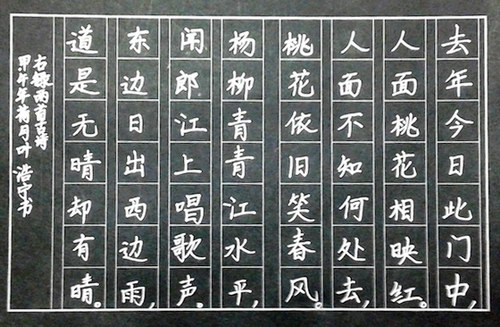 去年今日此门中,
人面桃花相映红。
人面不知何处去,
桃花依旧笑春风。
杨柳青青江水平,
闻郎江上唱歌声。
东边日出西边雨,
道是无晴却有晴。
右錄兩首古诗
甲午年荷月叶浩宁书